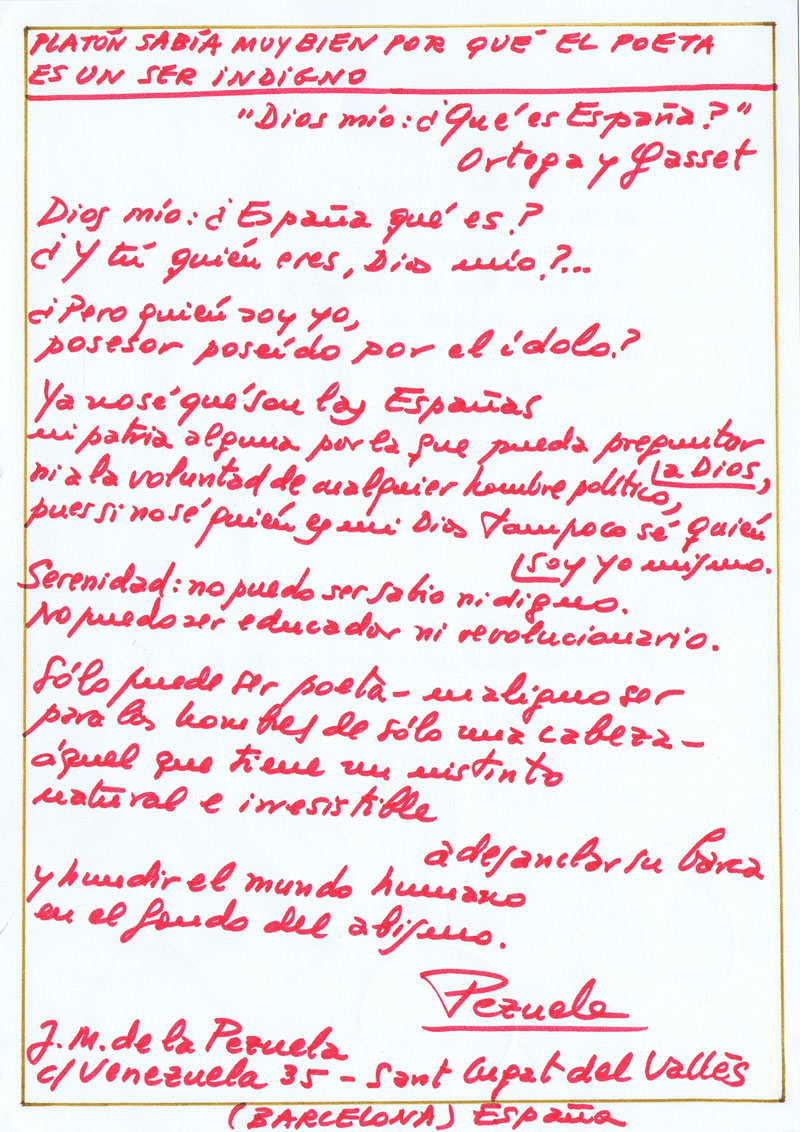 PLATÓN SABÍA MUY BIEN POR QUÉ EL POETA
ES UN SER INDIGNO
"Dios mío: ¿Qué es España?"
Ortega y Gasset
Dios mío: ¿España qué es?
¿Y tú quién eres, Dios mío?...
¿Pero quién soy yo,
posesor poseído por el ídolo?
Ya no sé qué son las Españas
ni patria alguna por la que pueda preguntar
a Dios,
ni a la voluntad de cualquier hombre político,
pues si no sé quién es mi Dios tampoco sé quién
soy yo mismo.
Serenidad: no puedo ser sabio ni digno.
No puedo ser educador ni revolucionario.
Sólo puede ser poeta - maligno ser
para los hombres de sólo una cabeza -
áquel que tiene un instinto
natural e irresistible
a desanclar su barca
y hundir el mundo humano
en el fondo del abismo.
Pezuela
J. M. de la Pezuela
c/ Venezuela 35 - Sant Cugat del Vallès
(BARCELONA) España